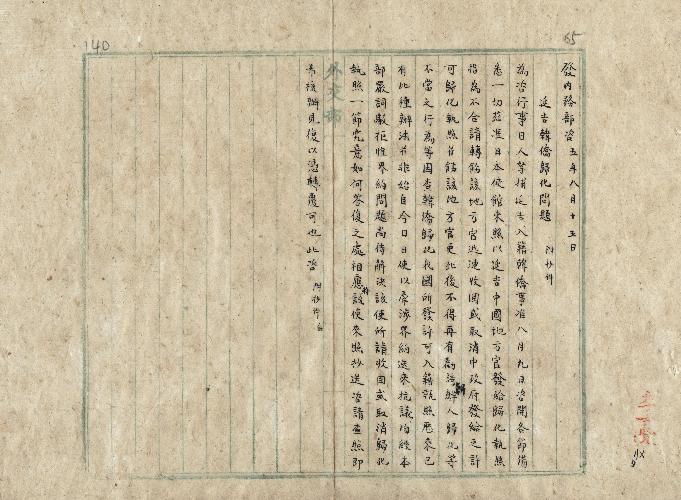 140
65
發內務部咨 五年八月十五日
延吉韓僑歸化問題 附抄件
為咨行事日人等捕延吉入籍韓僑事准八月九日咨開各節備
悉一切茲准日本使館來照以延吉中國地方官發給歸化執照
指為不合請轉飭該地方官迅速收回或取消中政府發給之許
可歸化執照并飭該地方官吏此後不得再有勸誘鮮人歸化等
不當之行為等因查韓僑歸化我國所發許可入籍執照歷來已
有此種辦法并非始自今日日使以牽涉界約迭來抗議均經本
部嚴詞駁拒惟界約問題尚待解決該使所請收回或取消歸化
執照一節究竟如何答復之處相應將該使來照抄送咨請查照即
希核辦見復以憑轉覆可也此咨 附抄件
外交部